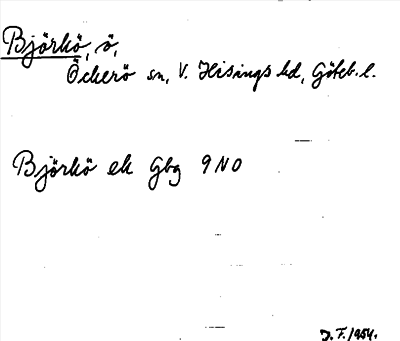 Björkö, ö,
Öckerö sn, V. Hisings hd, Göteb. l.
Björkö ek Gbg 9 NO
J. F. 1954.